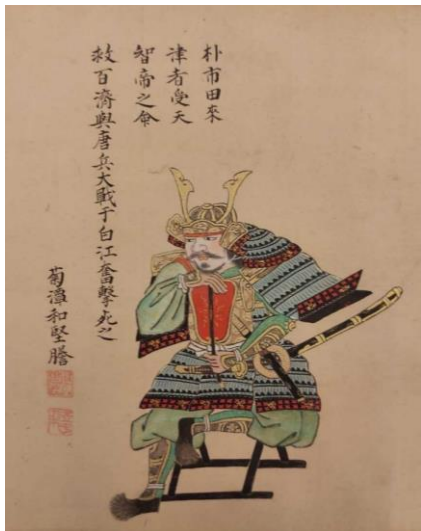 朴市田来
津者受天
智帝之命
救百濟與唐兵大戰于白江奮擊死之
菊潭和堅謄